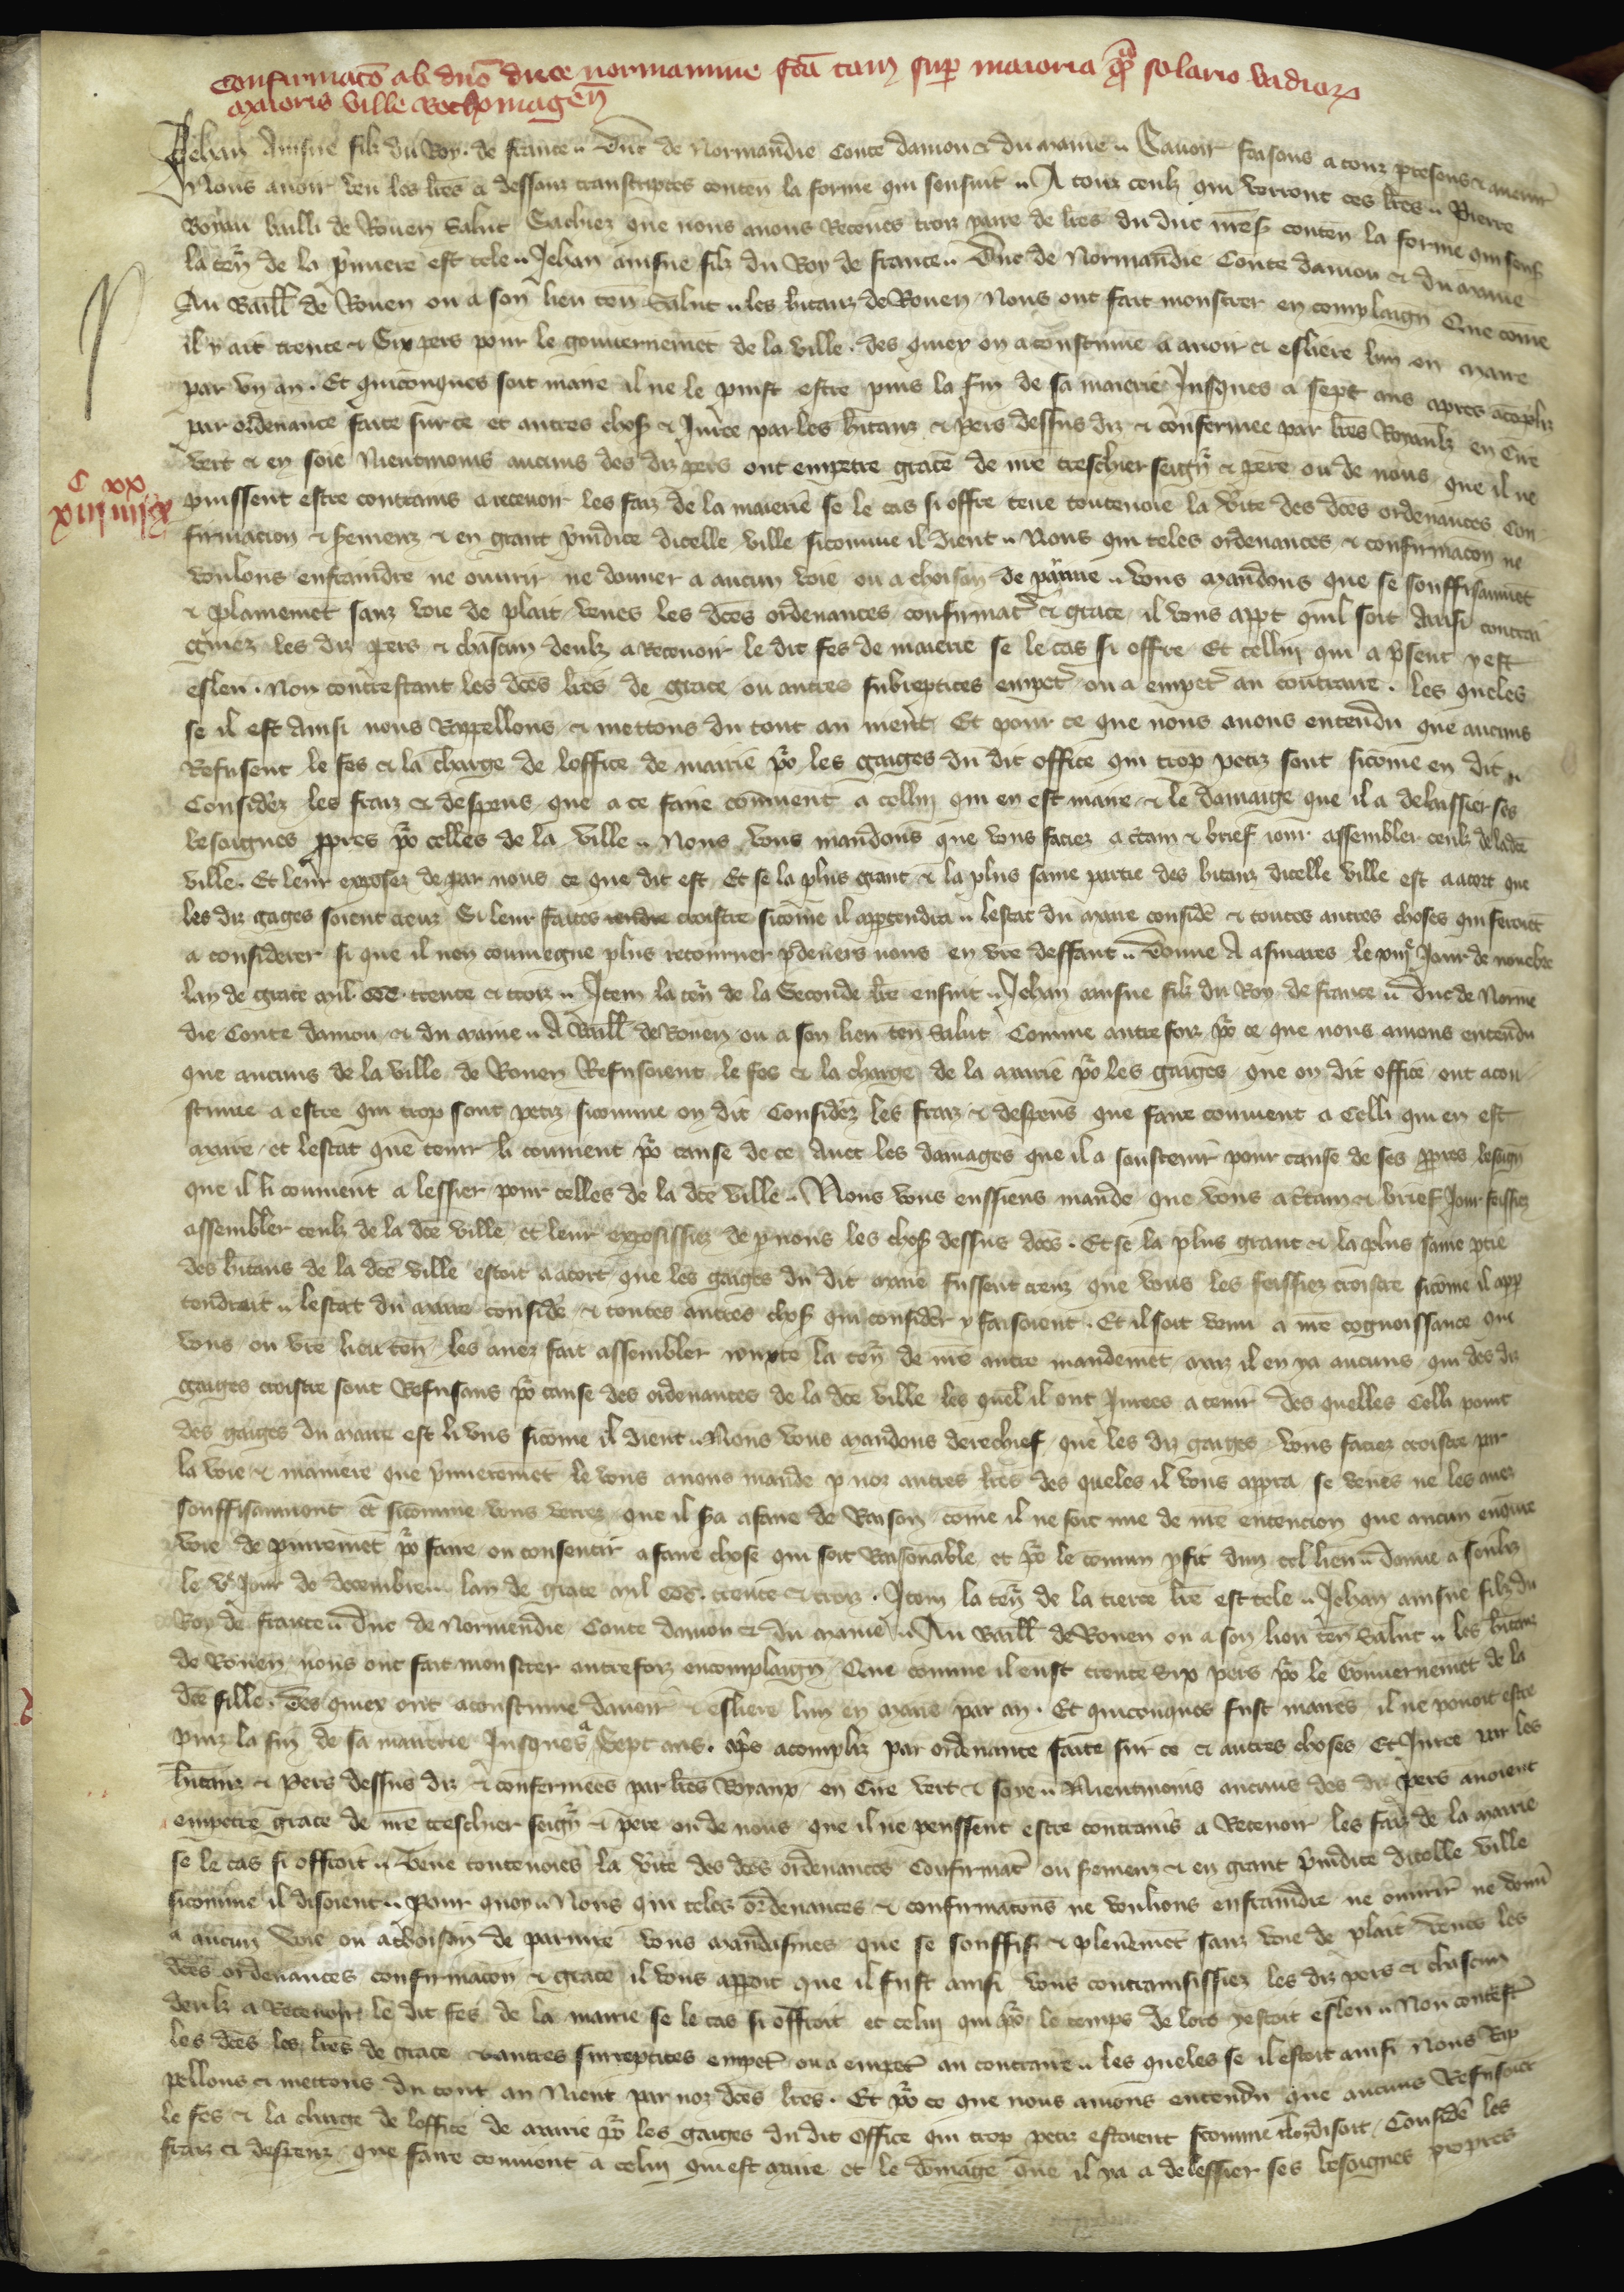 Confirmac̄o ab dn̄o duce normannie fc̄a tam sup maioria qͣm solario vadiorꝝ
maioris ville Rothomageñ
Jehan Ainsne filz du Roy de france Duc de Normandie Conte danjou & du maine Savoir faisons a touz presens & avenir
Nous avoir veu les lr̄es ci dessouz transcriptes conteñ la forme qui sensuit A touz ceulz qui verront ces lr̄es Pierre
baillı de Rouen Salut Sachiez que nous avons Receues trois paire de lr̄es du duc nr̄e s̄ conteñ la forme qui sens
la teñ de la p̄miere est tele Jehan ainsne filz du Roy de france Duc de Normandie Conte danjou & du maine
Au Baill̄ de Rouen ou a son lieu teñ Salut les bitanz de Rouen Nous ont fait monstrer en complaigñ Que come
il y ait trente & Six pers pour le gouvernemēt de la ville des quiex on a coustume a avoir & eslire lun en maire
par un an Et quiconques soit maire il ne le puist estre puis la fin de sa mairie Jusques a sept ans apres acōpliz
par ordenance faite sur ce et autres chos̄ & Juree par les bitanz & pers dessus diz & confermee par lr̄es Royaulz en Cire
vert & en soie Nientmoins aucuns des diz pers ont empetre grace de nr̄e treschier seigñ & pere ou de nous que il ne
C XX
puissent estre contrains a recevoir les faiz de la maierie se le cas si offre teue toutevoie la v̄ite des dc̄es ordenances Con
firmacion & s̄emenz & en grant p̄iudice dicelle ville sicomme il dient Nous qui teles ordenances & confirmacōn ne
voulons enfraindre ne ouvrir ne donner a aucun voie ou achoison de pariure vous mandons que se souffisaumēt
& plainemēt sanz voie de plait veues les dc̄es ordenances confirmat̄ & grace il vous appt̄ quil soit Ainsi contrai
gniez les diz pers & chascun deulz a Recevoir le dit fes de maierie se le cas si offre Et cellui qui a p̄sent y est
esleu Non contrestant les dc̄es lr̄es de grace ou autres subreptices empet̄ ou a empet̄ au contraire les queles
se il est Ainsi nous Rappellons & mettons du tout au nient Et pour ce que nous avons entendu que aucuns
Refusent le fes & la charge de loffice de mairie po̅ les gaiges du dit office qui trop petiz sont sicōme en dit
Considēz les fraiz & despens que a ce faire comment a cellui qui en est maire & le damaige que il a delaissier ses
besoignes ꝓpres po̅ celles de la ville Nous vous mandons que vous faciez a c̄tain & brief iour assembler ceulz de la dc̄e
ville Et leur exposez de par nous ce que dit est Et se la plus grant & la plus saine partie des bitanz dicelle ville est a acort que
les diz gages soient creuz Si leur faites croistre sicōme il appartendra lestat du maire considē & toutes autres choses qui feront
a considerer si que il nen conviegne plus retourner p̄devers nous en vr̄e deffaut Donne A asnieres le xiiijͤ Jour de novēbre
lan de grace mil CCC trente & trois Item la teñ de la Seconde lr̄e ensuit Jehan ainsne filz du Roy de france Duc de Norman
die Conte danjou & du maine A Baill̄ de Rouen ou a son lieu teñ Salut Comme autre foiz po̅ ce que nous avions entendu
que aucuns de la ville de Rouen Refusoient le fes & la charge de la mairie po̅ les gaiges que ou dit office ont acou
stume a estre qui trop sont petiz sicomme on dit Considēz les fraiz & despens que faire convient a Celli qui en est
maire et lestat que tenir li convient po̅ cause de ce Avec les damages que il a soustenir pour cause de ses ꝓpres besoigñ
que il li convient a lessier pour celles de la dc̄e ville Nous vous eussiens mande que vous a c̄tain & brief Jour feissiez
assembler ceulz de la dc̄e ville et leur exposissiez de p nous les chos̄ dessus dc̄es Et se la plus grant & la plus saine ptie
des bitans de la dc̄e ville estoit a acort que les gaiges du dit maire fussent creuz que vous les feissiez croistre sicōme il app
tendroit lestat du maire considē & toutes autres chos̄ qui considēr y faisoient Et il soit venu a nr̄e cognoissance que
vous ou vr̄e lieu teñ les avez fait assembler iouxte la teñ de nr̄e autre mandemēt maiz il en ya aucuns qui des diz
gaiges croistre sont Refusans po̅ cause des ordenances de la dc̄e ville les quel̄ il ont Jurees a tenir des quelles Celli point
des gaiges du maire est li uns sicōme il dient Nous vous mandons derechief que les diz gaiges vous faciez croistre par
la voie & maniere que p̄mieremēt le vous avons mande p noz autres lr̄es des queles il vous appra se veues ne les avez
souffisaument et sicomme vous verrez que il s̄a a faire de Raison come il ne soit mie de nr̄e entencion que aucun enqūre
voie de pariuremēt po̅ faire ou consentir a faire chose qui soit Raisonable et po̅ le comun ꝓfit dun tel lieu Donne a Senliz
le vͤ Jour de decembre lan de grace mil CCC trente & trois Item la teñ de la tierce lr̄e est tele Jehan ainsne filz du
Roy de france Duc de Normendie Conte danjou & du maine Au Baill̄ de Rouen ou a son lieu teñ Salut les bitanz
de Rouen nous ont fait monstrer autrefoiz en complaigñ Que comme il eust trente Six pers po̅ le Gouvernemēt de la
dc̄e fille Des quiex ont acoustume davoir & eslire lun en maire par an Et quiconques fust maires il ne pouoit estre
puiz la fin de sa mairerie Jusques a Sept ans ap̄s acompliz par ordenance faite sur ce & autres choses Et Juree par les
bitanz & pers dessus diz & confermees par lr̄es Royaux en Cire vert & soye Nientmoins aucuns des diz pers avoient
empetre grace de nr̄e treschier seigñ & pere ou de nous que il ne peussent estre contrains a Recevoir les faiz de la mairie
se le cas si offroit Teue toutevoies la v̄ite des dc̄es ordenances Confirmat̄ ou s̄emenz & en grant p̄iudice dicelle ville
sicomme il disoient Pour quoy Nous qui teles ordenances & confirmacōns ne voulions enfraindre ne ouvrir ne donn̄
a aucun voie ou achoison de pariure vous mandasmes que se souffis̄ & plenemēt sanz voie de plait veues les
dc̄es ordenances confirmacōn & grace il vous apparoit que il fust ainsi vous contrainsissiez les diz pers & chascun
deulz a Recevoir le dit fes de la mairie se le cas si offroit et celui qui po̅ le temps de lors y estoit esleu Non contest̄
les dc̄es les lr̄es de grace & autres surreptices empet̄ ou a empet̄ au contraire les queles se il estoit ainsi Nous Rap
pellons & mettons du tout au Nient par noz dc̄es lr̄es Et po̅ ce que nous avions entendu que aucuns Refusoiēt
le fes & la charge de loffice de mairie po̅ les gaiges du dit Office qui trop petiz estoient sicomme il disoit Considē les
fraiz & despenz que faire convient a celui qui est maire et le domage que il ya a delessier ses besoignes propres